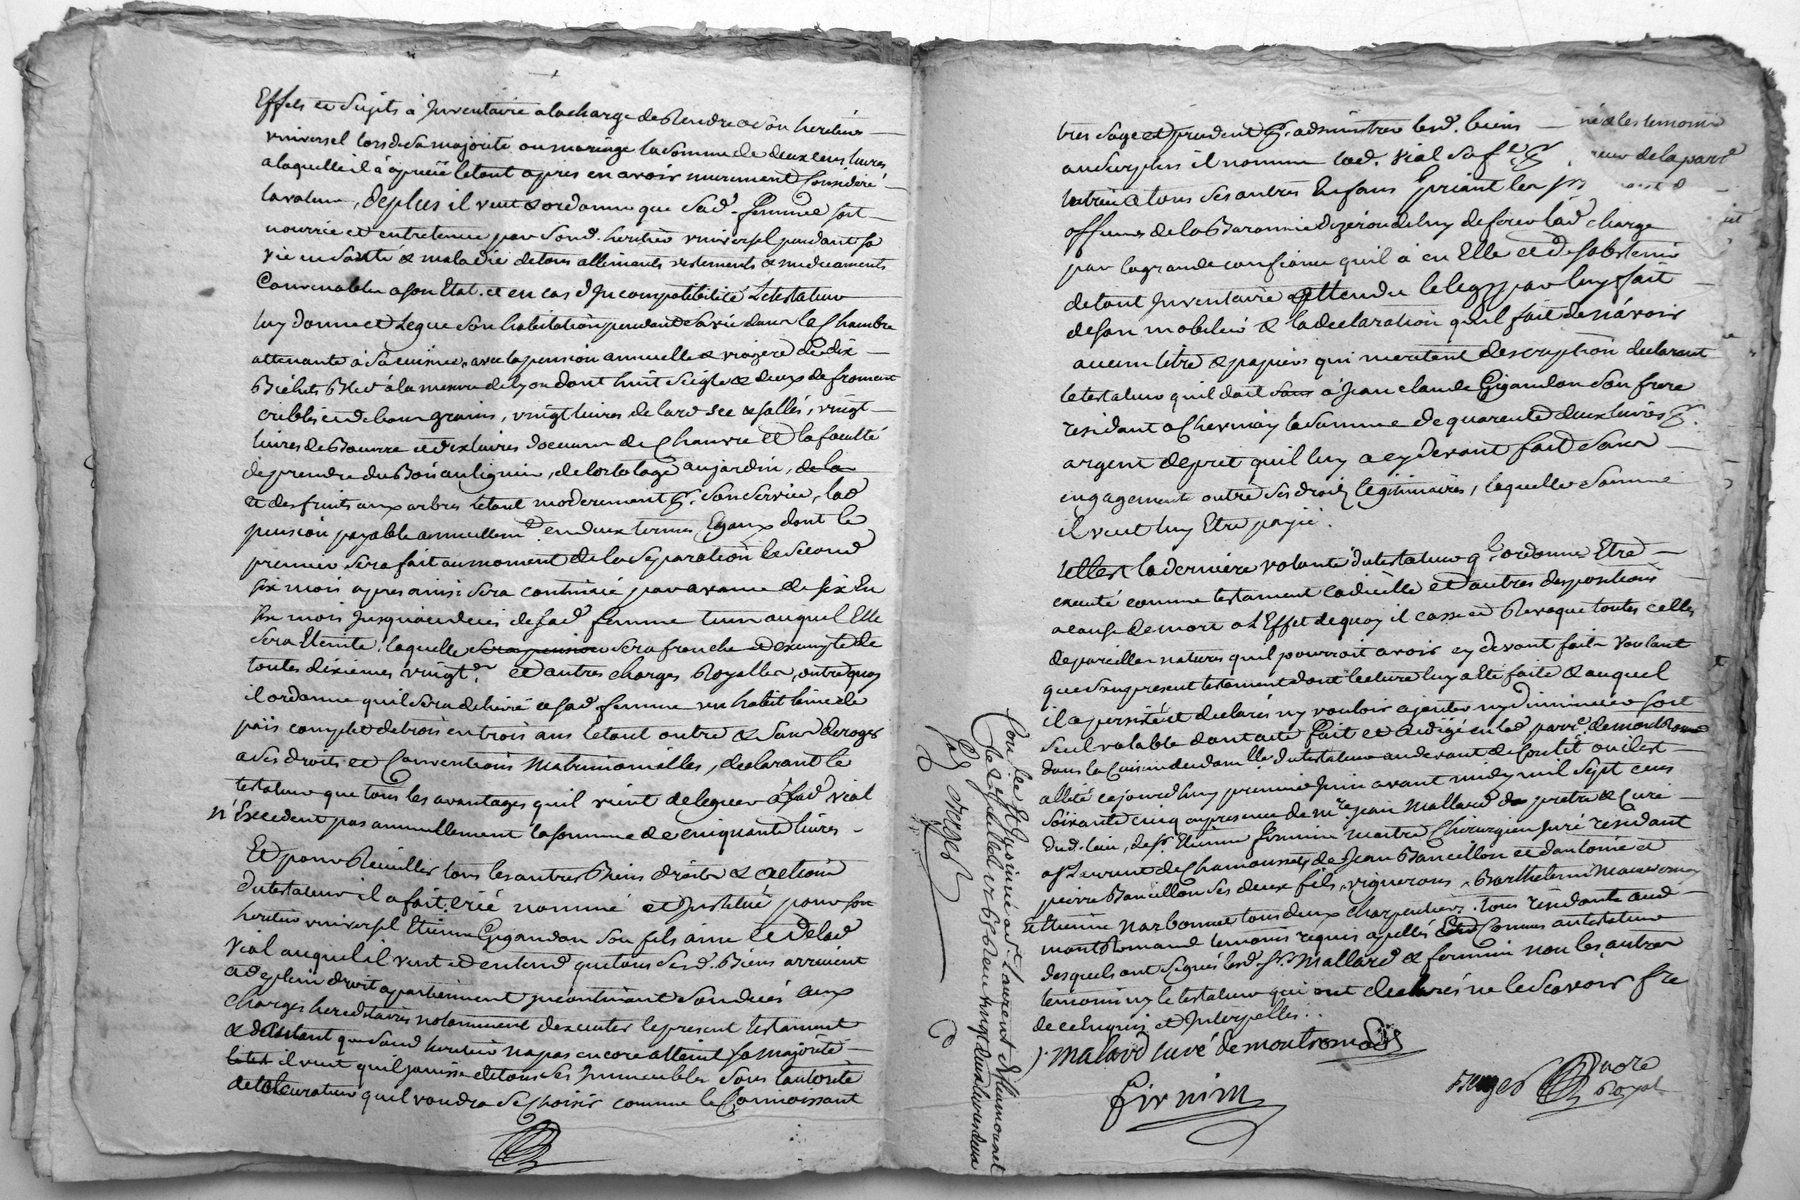 Effets et sujets à Inventaire ala charge de Rendre a son heritier
universel lors de sa majorité ou mariage la somme de deux cens livres
a laquelle il a aprecié letout apres en avoir murement consideré
la valeur, deplus il veut & ordonne que sad. femme soit
nourrie et entretenue par sond. heritier universel pendant sa
vie en santé & maladie detous alliments vestements & medicaments
Convenables a son Etat. et en cas d'Incompatibilité Le testateur
luy donne et Legue son habitation pendant sa vie dans la Chambre
attenante à sa cuisine, avec la pension annuelle & viagere de dix
Bichets Bled à la mesure de lyon dont huit seigle & deux de froment
criblés et de bons grains, vingt livres de lard sec & sallés, vingt
livres de Beurre et dix livres doeuvre de Chanvre et la faculté
de prendre du Bois au lignier, de lortolage au jardin, de la
et des fruits aux arbres letout moderement pr. son service, lad.
pension payable annuellemt. en deux termes Egaux dont le
premier sera fait au moment de la separation le second
six mois apres ainsi sera continué par avance de six En
six mois jusquau decés de sad. femme tems auquel Elle
sera Eteinte, laquelle sera pension sera franche et exempte de
toutes dixiemes, vingt.es et autres charges Royalles, outre quoy
il ordonne quil sera delivré a sad. femme un habit laine de
païs complet de trois en trois ans letout outre & sans deroger
a ses droits et Conventions Matrimonialles, declarant le
testateur que tous les avantages quil vient de leguer à sad. vial
n'Excedent pas annuellement la somme de cinquante livres.
Et pour Recueillir tous les autres Biens droits & actions
du testateur il a fait, créé nommé et Institué pour son
heritier universel Etienne Gigandon son fils ainé et de lad.
vial auquel il veut et entend que tous sesd. Biens arrivent
& de plein droit apartiennent incontinant son decés aux
charges hereditaires notamment dexecuter le present testament
& d'Autant que sond. heritier na pas encore atteint sa majorité
il veut quil jouisse de tous ses Immeubles sous lautorité
de tel Curateur quil voudra se choisir comme le Connoissant
tres sage et prudent pr. administrer lesd. biens
au surplus il nomme lad. vial sa fe. pr.
tutrice a tous ses autres Enfans Priant les srs
officiers de la Baronnie d'yzeron de luy deferer lad. charge
par la grande confiance quil à en Elle et de sabstenir
de tout Inventaire attendu le legs par luy fait
de son mobilier & la declaration quil fait de n'avoir
aucun titre & papiers qui meritent description declarant
le testateur quil doit sans à Jean claude Gigandon son frere
residant a Chevinay la somme de quarente deux livres pr.
argent de pret quil luy a cy devant fait sans
engagement outre ses droits legitimaires, laquelle somme
il veut luy Etre payée.
telle est la derniere volonté du testateur ql. ordonne Etre
executé comme testament Codicille et autres dispositions
a cause de mort a L'Effet de quoy il casse et Revoque toutes celles
de pareilles natures quil pourroit avoir cy devant fait voulant
que son present testament dont lecture luy a Eté faite & auquel
il a persisté et declarés ny vouloir ajouter ny diminuer soit
seul valable dont acte Fait et redigé en lad. parr.e de montRomand
dans la Cuisine du dom.lle du testateur au devant de son lit ou il est
allité ce jourdhuy premier Juin avant midy mil sept cens
soixante cinq en presence de mre. jean Mallard pretre & Curé
dud. lieu, de sr. Etienne firmin maitre Chirurgien Juré residant
a St Laurent de Chamousset, de Jean Bancillon et dantoine et
pierre Bancillon ses deux fils, vignerons, Barthelemi
Etienne Narbonnet tous deux charpentiers. tous residants aud.
montRomand temoins requis apellés et connus au testateur
desquels ont signés lesd. srs. Mallard & firmin non les autres
temoins ny le testateur qui ont declarés ne le Scavoir fre
de ce Enquis et Interpellés.
malard curé de montromand
firmin
Berger Nore Royal
Con.lé et Insinué a st laurent de Chamousset
le juillet 1765 Reçu vingt deux livres deux
s. Berger